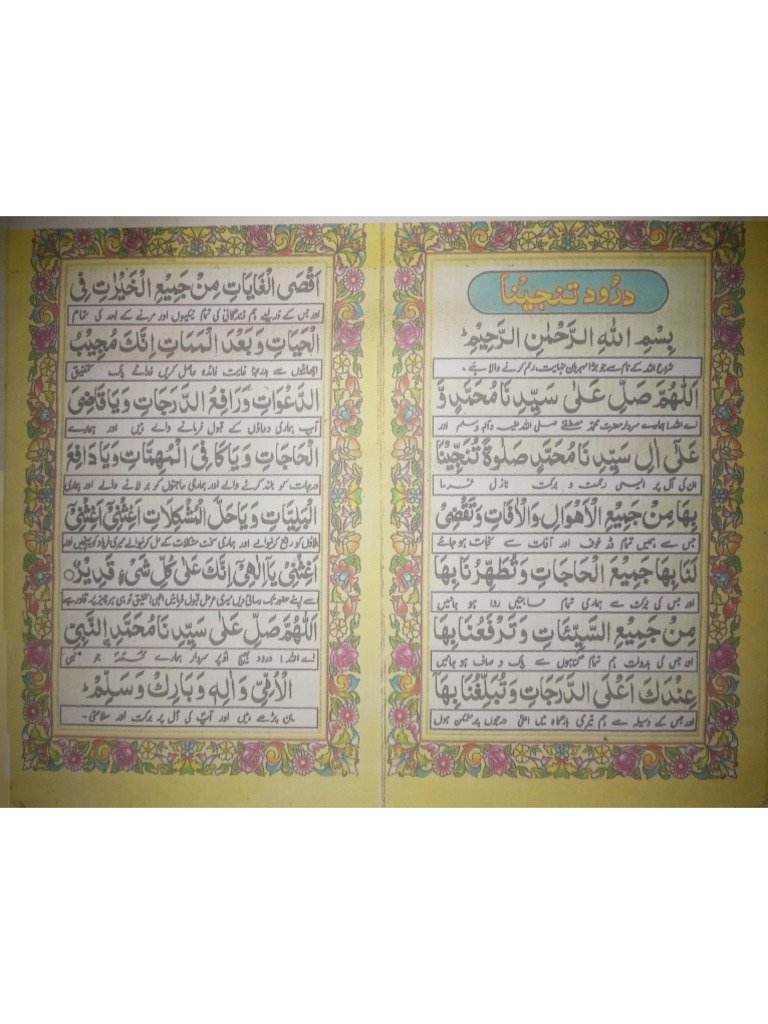 درود تنجینا
بِسْمِ اللهِ الرَّحْمٰنِ الرَّحِيْمِ ط
شروع اللہ کے نام سے جو بڑا مہربان نہایت رحم کرنے والا ہے ۔
اَللّٰهُمَّ صَلِّ عَلٰى سَيِّدِنَا مُحَمَّدٍ وَّ
اے اللہ! ہمارے سردار حضرت محمد مصطفےٰ صلی اللہ علیہ وآلہٖ وسلم اور
عَلٰٓى اٰلِ سَيِّدِنَا مُحَمَّدٍ صَلٰوةً تُنَجِّيْنَا
ان کی آل پر ایسی رحمت و برکت نازل فرما
بِهَا مِنْ جَمِيْعِ الْاَهْوَالِ وَالْاٰفَاتِ وَتَقْضِىْ
جس سے ہمیں تمام ڈر خوف اور آفات سے نجات ہو جائے
لَنَا بِهَا جَمِيْعَ الْحَاجَاتِ وَتُطَهِّرُنَا بِهَا
اور جس کی برکت سے ہماری تمام حاجتیں روا ہو جائیں
مِنْ جَمِيْعِ السَّيِّئَاتِ وَتَرْفَعُنَا بِهَا
اور جس کی بدولت ہم تمام گناہوں سے پاک و صاف ہو جائیں
عِنْدَكَ اَعْلَى الدَّرَجَاتِ وَتُبَلِّغُنَا بِهَا
اور جس کے وسیلہ سے ہم تیری بارگاہ میں اعلیٰ درجوں پر متمکن ہوں
اَقْصَى الْغَايَاتِ مِنْ جَمِيْعِ الْخَيْرٰتِ فِى
اور جس کے ذریعے ہم زندگانی کی تمام نیکیوں اور مرنے کے بعد کی تمام
الْحَيَاتِ وَبَعْدَ الْمَمَاتِ اِنَّكَ مُجِيْبُ
اچھائیوں سے بدرجہ غایت فائدہ حاصل کریں خدائے پاک تحقیق
الدَّعْوَاتِ وَرَافِعُ الدَّرَجَاتِ وَيَا قَاضِىَ
آپ ہماری دعاؤں کے قبول فرمانے والے ہیں اور ہمارے
الْحَاجَاتِ وَيَا كَافِىَ الْمُهِمَّاتِ وَيَا دَافِعَ
درجات کو بلند کرنے والے اور ہماری حاجتوں کو بر لانے والے اور ہماری
الْبَلِيَّاتِ وَيَا حَلَّ الْمُشْكِلَاتِ اَغِثْنِىْ اَغِثْنِىْ
بلاؤں کو رفع کرنیوالے اور ہماری سخت مشکلات کے حل کرنیوالے میری فریاد کو پہنچیں اور
اَغِثْنِىْ يَآ اِلٰهِىْ اِنَّكَ عَلٰى كُلِّ شَىْءٍ قَدِيْرٌ
سے اپنے حضور تک رسائی دیں میری عرض قبول فرمائیں الٰہی تحقیق تو ہی ہر چیز پر قادر ہے
اَللّٰهُمَّ صَلِّ عَلٰى سَيِّدِنَا مُحَمَّدِ ِ النَّبِيِّ
اے اللہ! درود بھیج اوپر سردار ہمارے محمد جو نبی
الْاُمِّىِّ وَاٰلِهٖ وَبَارِكْ وَسَلِّمْ ط
بن پڑھے ہیں اور آپ کی آل پر برکت اور سلامتی ۔